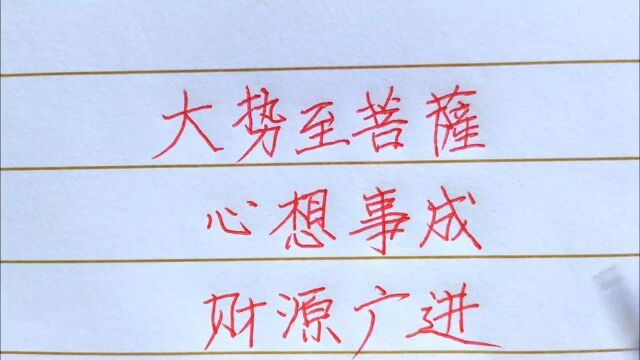 大势至菩薩
心想事成
财源广进